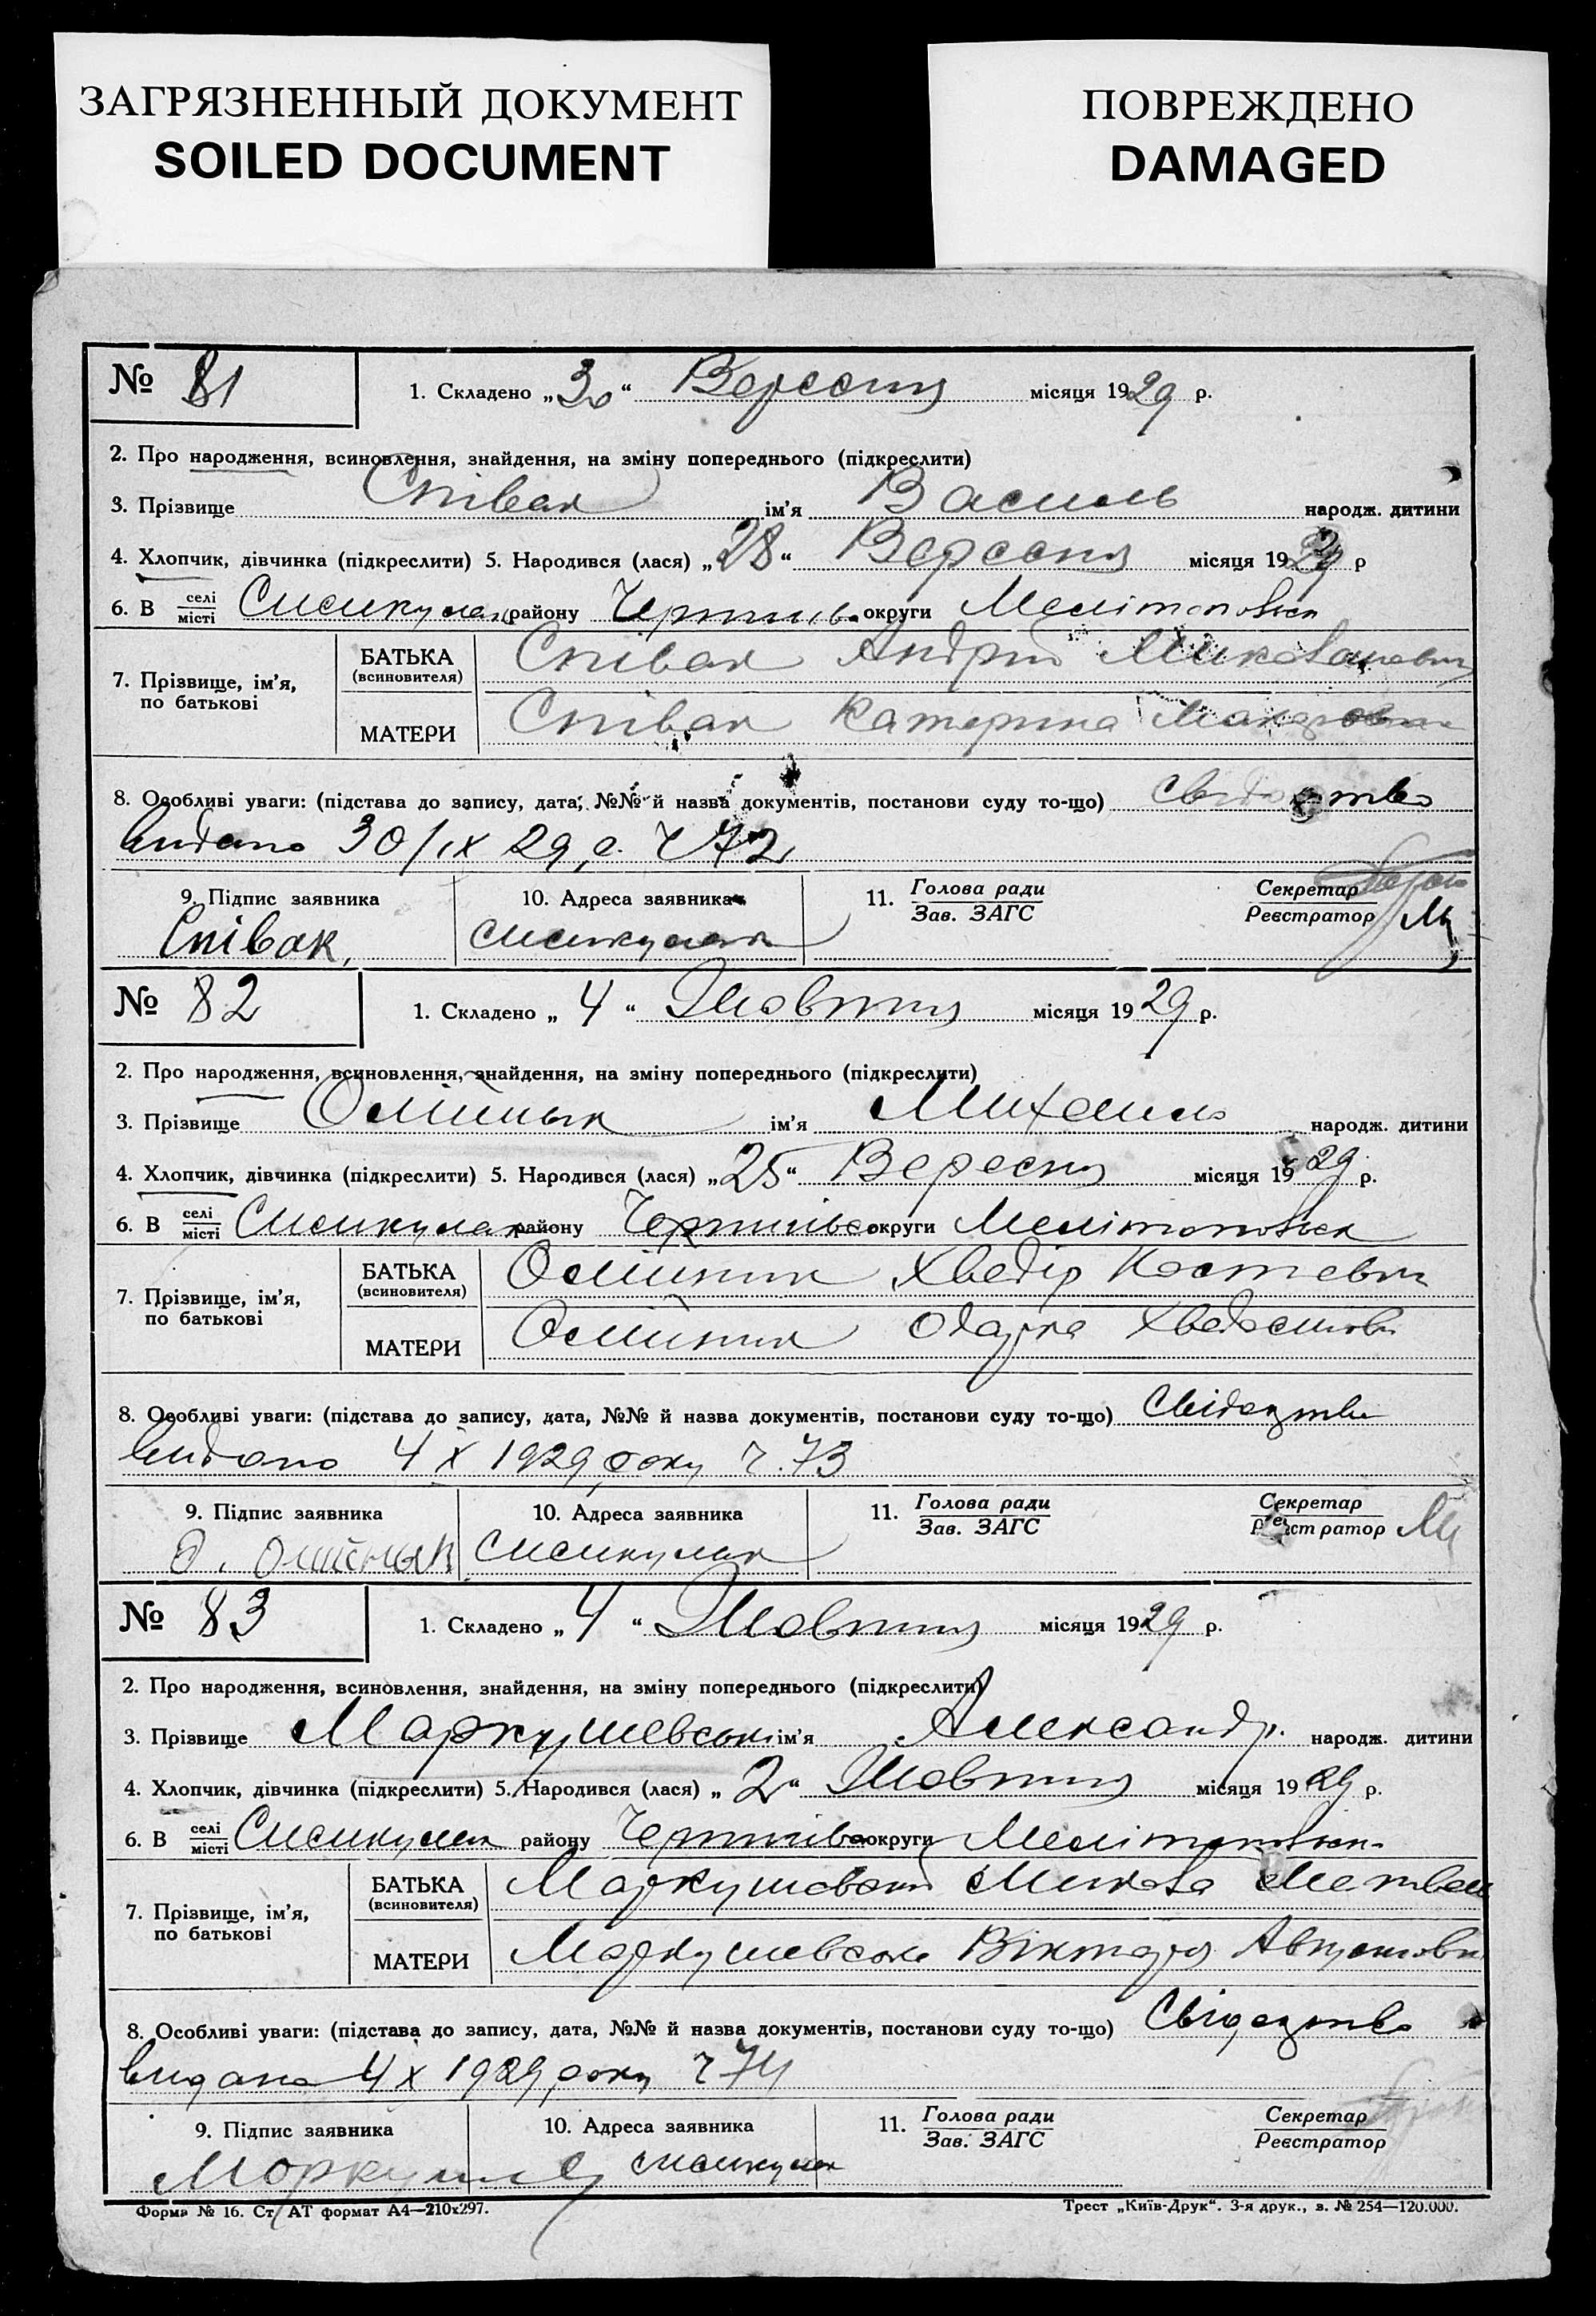 ЗАГРЯЗНЕННЫЙ ДОКУМЕНТ
SOILED DOCUMENT
ПОВРЕЖДЕНО
DAMAGED
№ 81 1. Складено „30“ Вересня місяця 1929 р.
2. Про народження, всиновлення, знайдення, на зміну попереднього (підкреслити)
3. Прізвище Співак ім'я Василь народж. дитини
4. Хлопчик, дівчинка (підкреслити) 5. Народився (лася) „28“ Вересня місяця 1929 р
6. В селі місті району округи
7. Прізвище, ім'я, по батькові
БАТЬКА (всиновителя) Співак Андрій Миколаевич
МАТЕРИ Співак Катерина
8. Особливі уваги: (підстава до запису, дата, №№ й назва документів, постанови суду то-що)
видано 30/ІХ 29 72
9. Підпис заявника 10. Адреса заявника 11. Голова ради Зав. ЗАГС Секретар Реєстратор
Співак
№ 82 1. Складено „4“ Жовтня місяця 1929 р.
2. Про народження, всиновлення, знайдення, на зміну попереднього (підкреслити)
3. Прізвище Олійнык ім'я Михаило народж. дитини
4. Хлопчик, дівчинка (підкреслити) 5. Народився (лася) „25“ Вересня місяця 1929 р.
6. В селі місті району округи
7. Прізвище, ім'я, по батькові
БАТЬКА (всиновителя) Олійник Хведір Костевич
МАТЕРИ Олійник Одарка
8. Особливі уваги: (підстава до запису, дата, №№ й назва документів, постанови суду то-що)
видано 4 Х 1929 року ч. 73
9. Підпис заявника 10. Адреса заявника 11. Голова ради Зав. ЗАГС Секретар Реєстратор
О. Олійнык
№ 83 1. Складено „4“ Жовтня місяця 1929 р.
2. Про народження, всиновлення, знайдення, на зміну попереднього (підкреслити)
3. Прізвище Маркушевські ім'я Александр. народж. дитини
4. Хлопчик, дівчинка (підкреслити) 5. Народився (лася) „2“ Жовтня місяця 1929 р.
6. В селі місті району округи
7. Прізвище, ім'я, по батькові
БАТЬКА (всиновителя) Маркушевский Микола
МАТЕРИ Маркушевська Вікторя
8. Особливі уваги: (підстава до запису, дата, №№ й назва документів, постанови суду то-що)
видана 4 Х 1929 року ч 74
9. Підпис заявника 10. Адреса заявника 11. Голова ради Зав. ЗАГС Секретар Реєстратор
Форма № 16. Ст АТ формат А4—210х297. Трест „Київ-Друк“. 3-я друк., з. № 254—120.000.